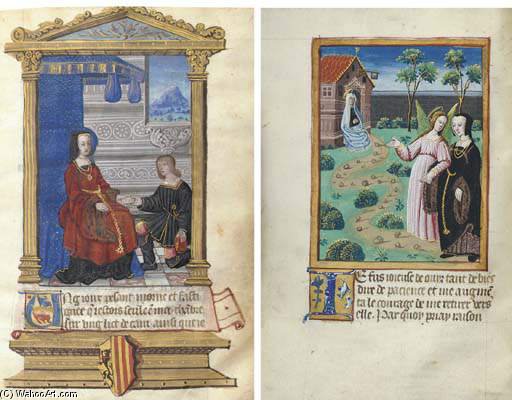 Ung iour pesant morne et fasti
iestois seulle en
sur ung lict de camp ainsi
Ie fus ioieuse de ouir tant de bies
dire de pacience et me augmen
ta le courage de me retirer vers
elle. Par quoy priay raison
(C) WahooArt.com